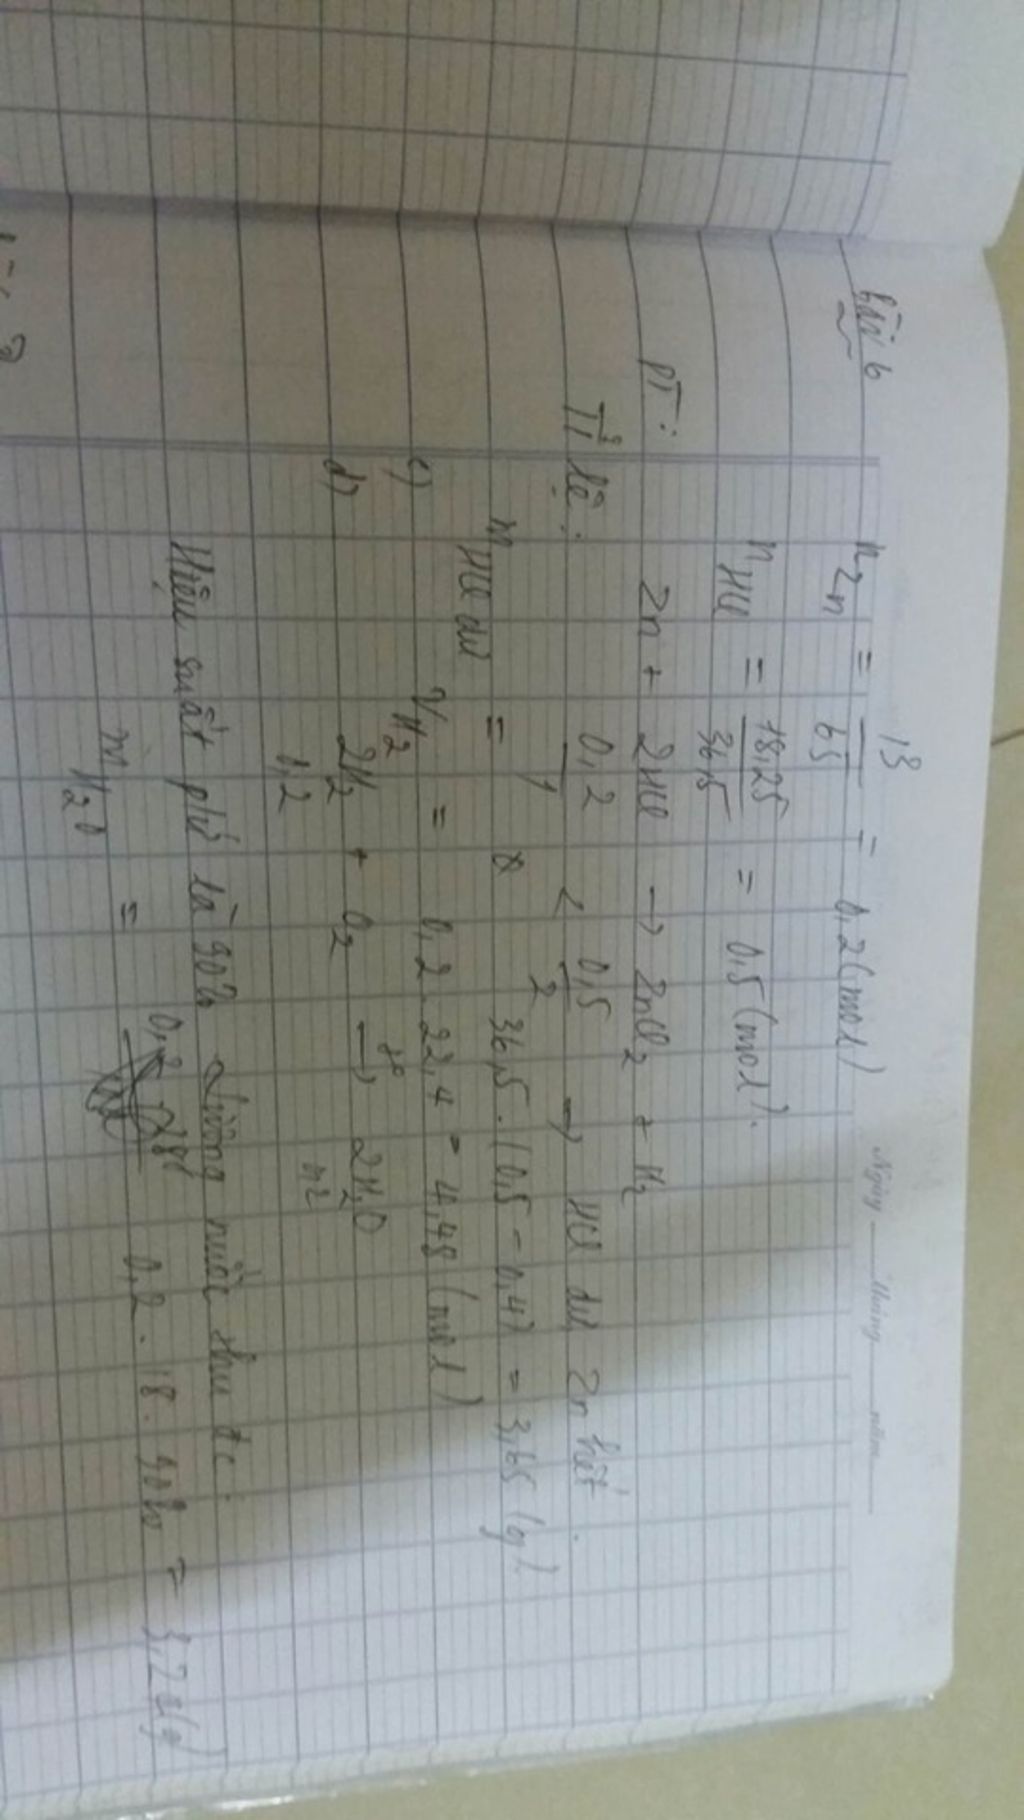 Ngày Tháng năm
bài 6
n Zn = 13/65 = 0,2 (mol)
n HCl = 18,25/36,5 = 0,5 (mol).
PT: Zn + 2HCl → ZnCl2 + H2
Tỉ lệ: 0,2/1 < 0,5/2 → HCl dư Zn hết.
m HCl dư = 36,5.(0,5 - 0,4) = 3,65 (g)
c) V H2 = 0,2.22,4 = 4,48 (mol)
d) 2H2 + O2 →t° 2H2O
0,2
Hiệu suất pứ là 90% Lượng nước thu đc:
m H2O = 0,2.18.90% = 3,24(g)